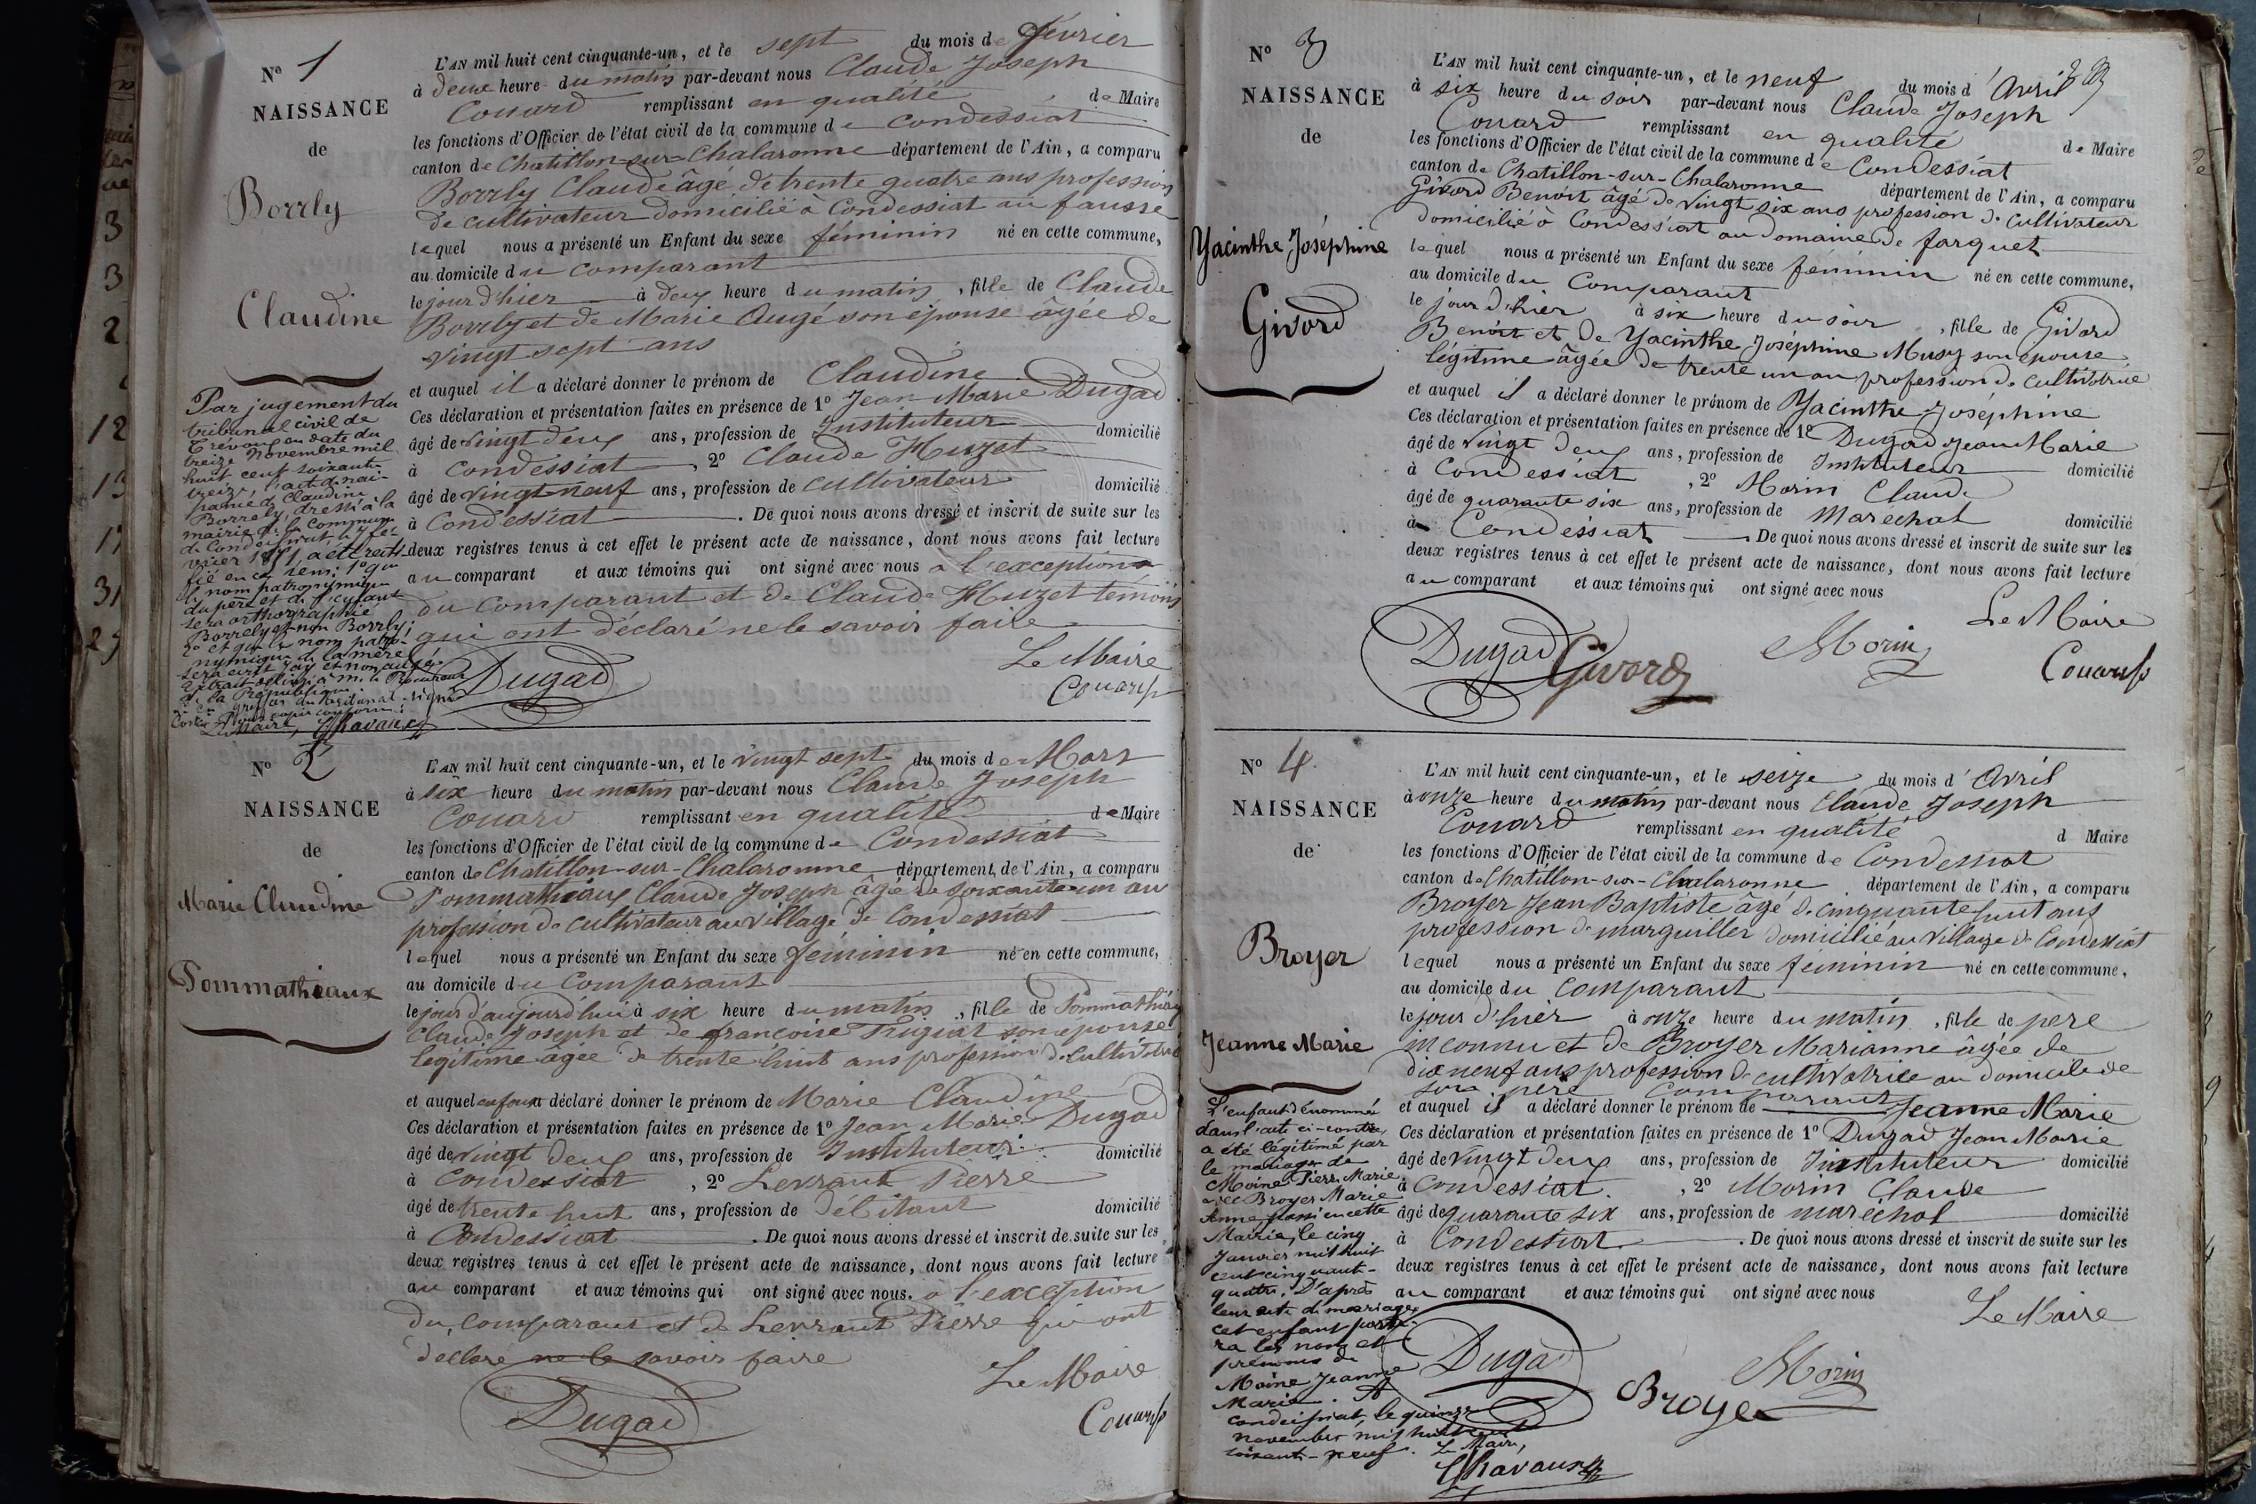 N° 1
NAISSANCE
de
Borrly
Claudine
L'AN mil huit cent cinquante-un, et le sept du mois de février
à deux heure du matin par-devant nous Claude Joseph
Couard remplissant en qualité de Maire
les fonctions d'Officier de l'état civil de la commune de Condessiat
canton de Chatillon-sur-Chalaronne département de l'Ain, a comparu
Borrly Claude âgé de trente quatre ans profession
de cultivateur domicilié à Condessiat au fausse
lequel nous a présenté un Enfant du sexe féminin né en cette commune,
au domicile du comparant
le jour d'hier à deux heure du matin, fille de Claude
Borrly et de Marie Augé son épouse âgée de
vingt sept ans
et auquel il a déclaré donner le prénom de Claudine
Ces déclaration et présentation faites en présence de 1° Jean Marie Dugad
âgé de vingt deux ans, profession de Instituteur domicilié
à Condessiat, 2° Claude Huzet
âgé de vingt neuf ans, profession de cultivateur domicilié
à Condessiat. De quoi nous avons dressé et inscrit de suite sur les
deux registres tenus à cet effet le présent acte de naissance, dont nous avons fait lecture
au comparant et aux témoins qui ont signé avec nous à l'exception
du comparant et de Claude Huzet témoins
qui ont déclaré ne le savoir faire
Le Maire
Dugad
Couard
Par jugement du
tribunal civil de
Trévoux en date du
treize Novembre mil
huit cent soixante
treize, l'acte de nais-
sance de Claudine
Borrely, dressé à la
mairie de la Commune
de Condeissiat, le 7 fé-
vrier 1851 a été recti-
fié en ce sens: 1° que
le nom patronymique
du père et de l'enfant
sera orthographié
Borrely et non Borrly;
2° et que le nom patro-
nymique de la mère
sera écrit et non augé.
Extrait délivré à M. le Procureur
de la République
Le Maire, Chavaux
N° 2
NAISSANCE
de
Marie Claudine
Pommathieaux
L'AN mil huit cent cinquante-un, et le vingt sept du mois de Mars
à six heure du matin par-devant nous Claude Joseph
Couard remplissant en qualité de Maire
les fonctions d'Officier de l'état civil de la commune de Condessiat
canton de Chatillon-sur-Chalaronne département de l'Ain, a comparu
Pommathieaux Claude Joseph âgé de soixante un an
profession de cultivateur au village de Condessiat
lequel nous a présenté un Enfant du sexe féminin né en cette commune,
au domicile du comparant
le jour d'aujourd'hui à six heure du matin, fille de Pommathieaux
Claude Joseph et de françoise son épouse
légitime âgée de trente huit ans profession de cultivatrice
et auquel enfant a déclaré donner le prénom de Marie Claudine
Ces déclaration et présentation faites en présence de 1° Jean Marie Dugad
âgé de vingt deux ans, profession de Instituteur domicilié
à Condessiat, 2° Levraut Pierre
âgé de trente huit ans, profession de débitant domicilié
à Condessiat. De quoi nous avons dressé et inscrit de suite sur les
deux registres tenus à cet effet le présent acte de naissance, dont nous avons fait lecture
au comparant et aux témoins qui ont signé avec nous. à l'exception
du comparant et de Levraut Pierre qui ont
déclaré ne le savoir faire
Le Maire
Dugad
Couard
N° 3
NAISSANCE
de
Yacinthe Joséphine
Givord
L'AN mil huit cent cinquante-un, et le neuf du mois d'Avril
à six heure du soir par-devant nous Claude Joseph
Couard remplissant en qualité de Maire
les fonctions d'Officier de l'état civil de la commune de Condessiat
canton de Chatillon-sur-Chalaronne département de l'Ain, a comparu
Givord Benoit âgé de vingt six ans profession de cultivateur
domicilié à Condessiat au domaine de farquet
lequel nous a présenté un Enfant du sexe féminin né en cette commune,
au domicile du Comparant
le jour d'hier à six heure du soir, fille de Givord
Benoit et de Yacinthe Joséphine Musy son épouse
légitime âgée de trente un an profession de cultivatrice
et auquel il a déclaré donner le prénom de Yacinthe Joséphine
Ces déclaration et présentation faites en présence de 1° Dugad Jean Marie
âgé de vingt deux ans, profession de Instituteur domicilié
à Condessiat, 2° Morin Claude
âgé de quarante six ans, profession de Maréchal domicilié
à Condessiat. De quoi nous avons dressé et inscrit de suite sur les
deux registres tenus à cet effet le présent acte de naissance, dont nous avons fait lecture
au comparant et aux témoins qui ont signé avec nous
Le Maire
Dugad Givord Morin Couard
N° 4
NAISSANCE
de
Broyer
Jeanne Marie
L'AN mil huit cent cinquante-un, et le seize du mois d'Avril
à onze heure du matin par-devant nous Claude Joseph
Couard remplissant en qualité d Maire
les fonctions d'Officier de l'état civil de la commune de Condessiat
canton de Chatillon-sur-Chalaronne département de l'Ain, a comparu
Broyer Jean Baptiste âgé de cinquante huit ans
profession de marguiller domicilié au village de Condessiat
lequel nous a présenté un Enfant du sexe féminin né en cette commune,
au domicile du comparant
le jour d'hier à onze heure du matin, fille de père
inconnu et de Broyer Marianne âgée de
dix neuf ans profession de cultivatrice au domicile de
son père comparant
et auquel il a déclaré donner le prénom de Jeanne Marie
Ces déclaration et présentation faites en présence de 1° Dugad Jean Marie
âgé de vingt deux ans, profession de Instituteur domicilié
à Condessiat, 2° Morin Claude
âgé de quarante six ans, profession de maréchal domicilié
à Condessiat. De quoi nous avons dressé et inscrit de suite sur les
deux registres tenus à cet effet le présent acte de naissance, dont nous avons fait lecture
au comparant et aux témoins qui ont signé avec nous
Le Maire
Dugad Broyer Morin
L'enfant dénommé
dans l'acte ci-contre,
a été légitimé par
le mariage de
Moine Pierre Marie
avec Broyer Marie
Anne passé en cette
Mairie, le cinq
Janvier mil huit
cent cinquante-
quatre. D'après
leur acte de mariage,
cet enfant porte-
ra les nom et
prénoms de
Moine Jeanne
Marie. A
Condeissiat, le quinze
novembre mil huit cent
soixante-neuf. Le Maire,
Chavaux